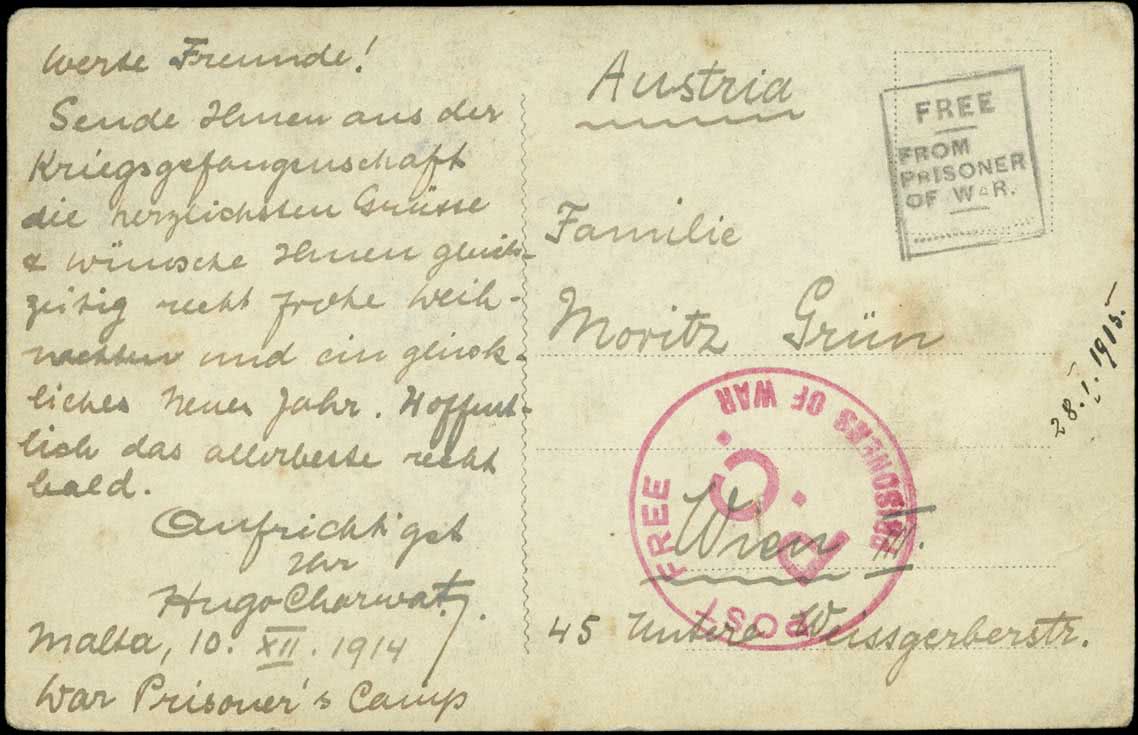 Werte Freunde!
Sende Ihnen aus der
Kriegsgefangenschaft
die herzlichsten Grüsse
& wünsche Ihnen gleich-
zeitig recht frohe Weih-
nachten und ein glück-
liches Neues Jahr. Hoffent-
lich das allerbeste recht
bald.
Aufrichtigst
Ihr
Hugo Charwat.
Malta, 10. XII. 1914
War Prisoner's Camp
Austria
FREE
FROM
PRISONER
OF WAR.
Familie
Moritz Grün
Wien III.
45 Untere Weissgerberstr.
FREE POST
PRISONERS OF WAR
P.C.
28.I.1915.